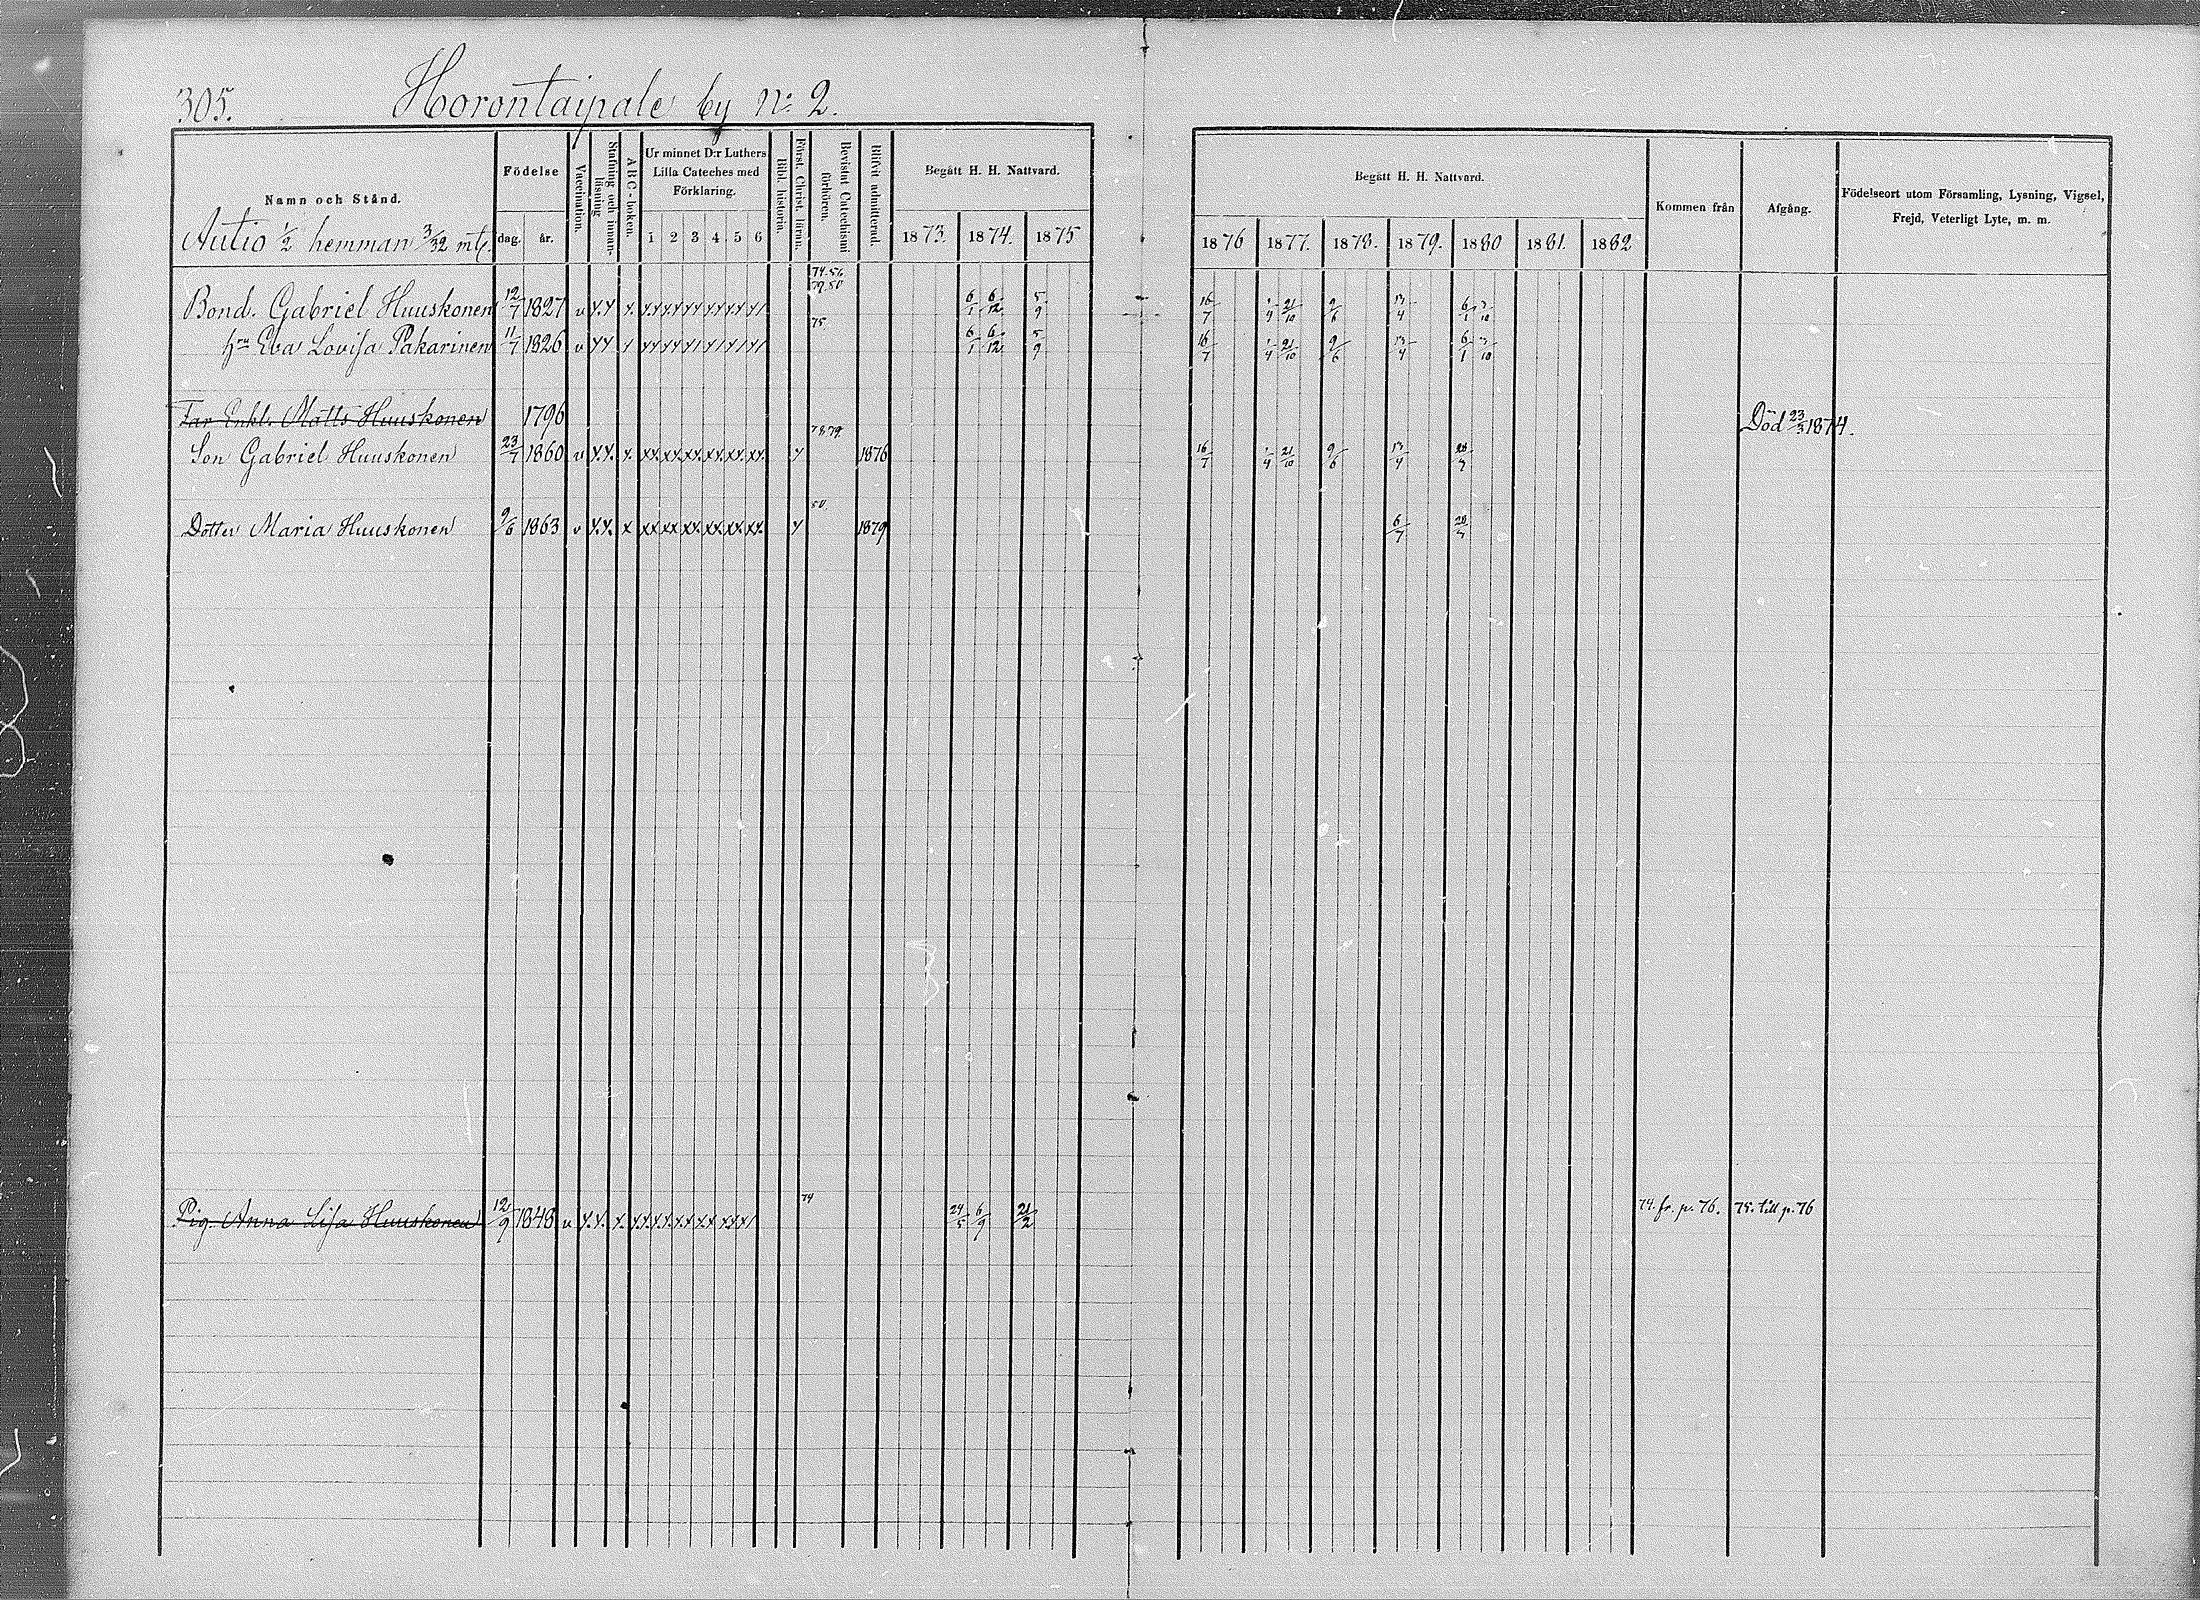 305. Horontaipale by No: 2.
Namn och Stånd.
Autio 1/2 hemman 3/32 mtl.
Födelse
dag. år.
Vaccination.
Stafning och innanläsning.
ABC-boken.
Ur minnet D:r Luthers Lilla Cateches med Förklaring.
1 2 3 4 5 6
Bibl. historia.
Först. Christ. läran.
Bevistat Catechismi förhören.
Blifvit admitterad.
Begått H. H. Nattvard.
1873. 1874. 1875
Begått H. H. Nattvard.
1876 1877. 1878. 1879. 1880 1881. 1882
Kommen från
Afgång.
Födelseort utom Församling, Lysning, Vigsel, Frejd, Veterligt Lyte, m. m.
79.80
Bond. Gabriel Huuskonen 12/7 1827 v 6/1 6/12 5/9 16/7 1/4 21/10 9/6 13/4 6/1
75.
hru Eva Lovisa Pakarinen 11/7 1826 v 6/1 6/12 5/9 16/7 1/4 21/10 9/6 13/4 6/1
Far Enkl. Matts Huuskonen 1796 Död 23/3 1874.
78.79
Son Gabriel Huuskonen 23/7 1860 v 1876 16/7 1/4 21/10 9/6 13/4
80.
Dotter Maria Huuskonen 9/6 1863 v 1879 6/7
74
Pig. Anna Lisa Huuskonen 12/9 1848 v 24/5 6/9 21/2 74. fr. p. 76. 75. till p. 76